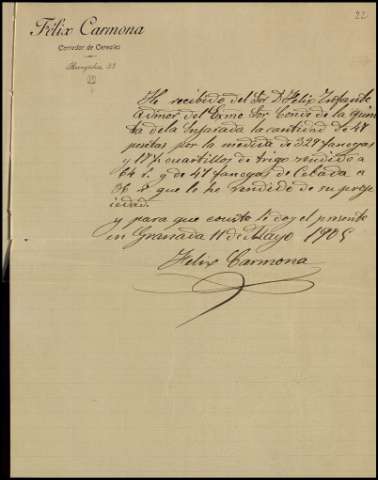 22
Félix Carmona
Corredor de Cereales
He recibido del Sor D. Felix Infante
Admor del Exmo Sor Conde de la Quin
ta de la Enjarada la cantidad de 47
pesetas por la medida de 329 fanegas
y 17½ cuartillos de trigo vendido a
64 r. y de 47 fanegas de Cebada a
36 r. que le he vendido de su propie
dad.
y para que conste le doy el presente
en Granada 11 de Mayo 1905
Felix Carmona